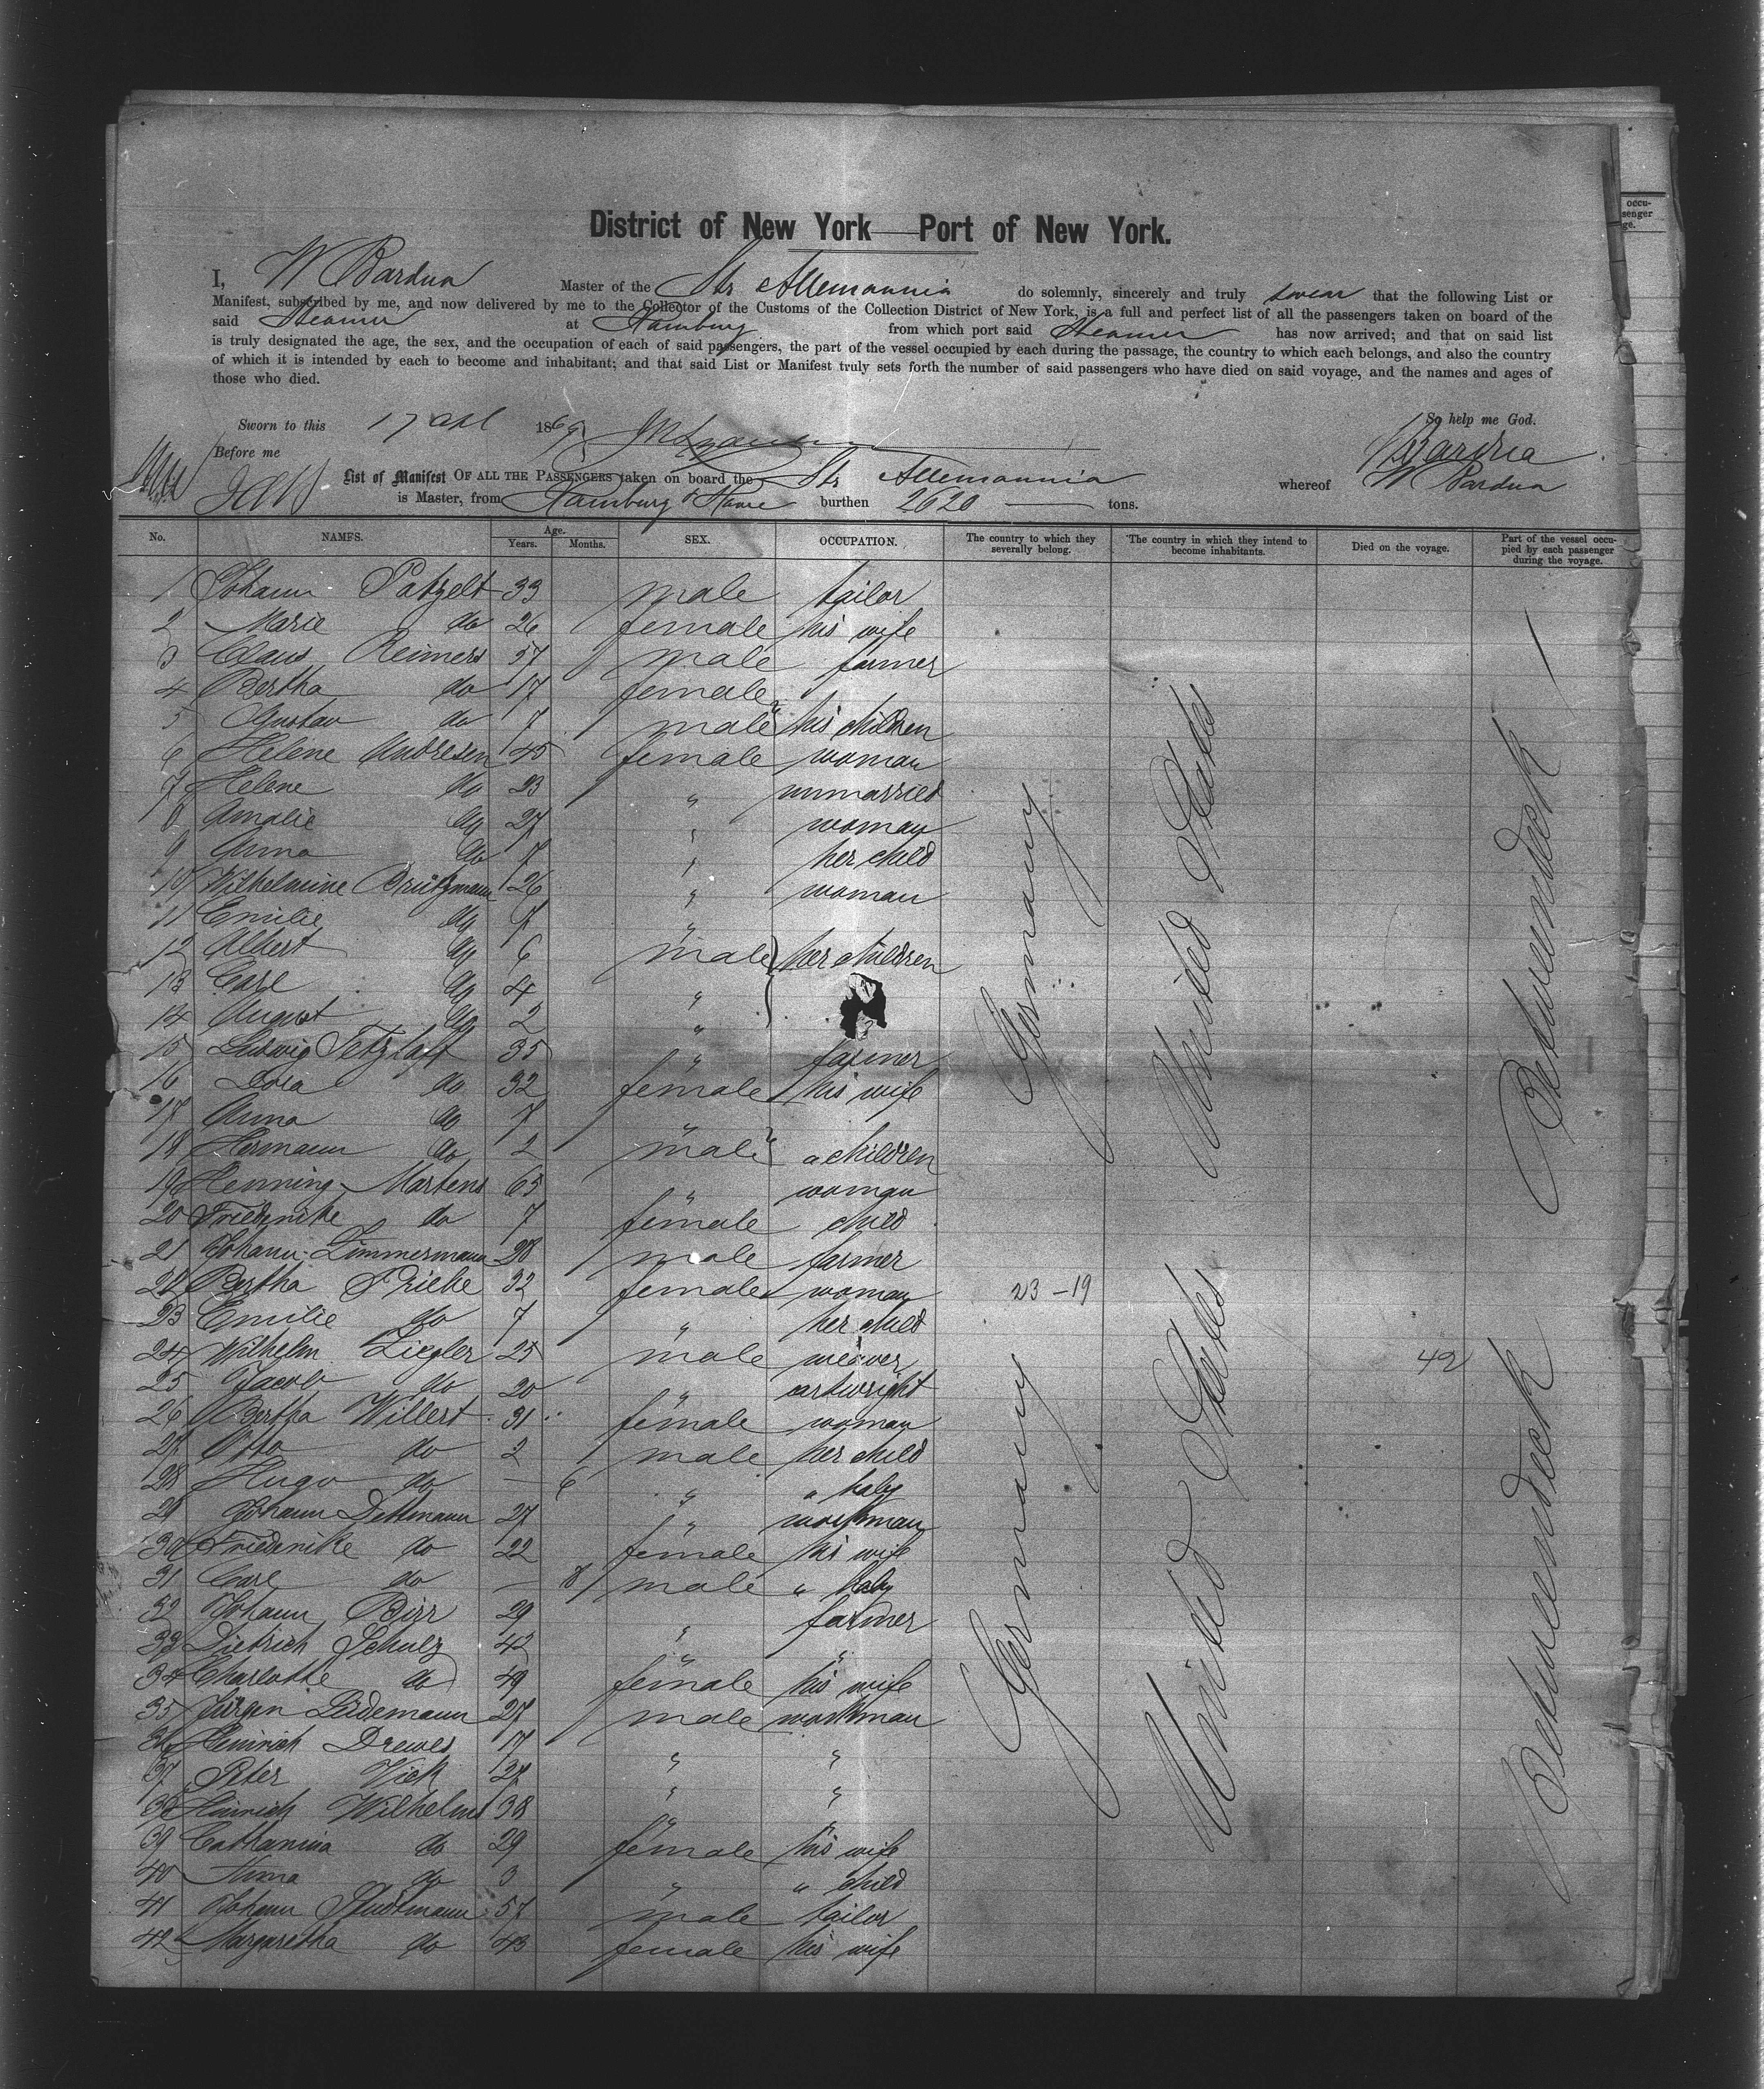 District of New York—Port of New York.
I, W Bardua Master of the Str Allemannia do solemnly, sincerely and truly swear that the following List or
Manifest, subscribed by me, and now delivered by me to the Collector of the Customs of the Collection District of New York, is a full and perfect list of all the passengers taken on board of the
said Steamer at Hamburg from which port said Steamer has now arrived; and that on said list
is truly designated the age, the sex, and the occupation of each of said passengers, the part of the vessel occupied by each during the passage, the country to which each belongs, and also the country
of which it is intended by each to become and inhabitant; and that said List or Manifest truly sets forth the number of said passengers who have died on said voyage, and the names and ages of
those who died.
So help me God.
Sworn to this 17 apl 1869
Before me
W Bardua
List of Manifest OF ALL THE PASSENGERS taken on board the Str Allemannia whereof W Bardua
is Master, from Hamburg & Havre burthen 2620 tons.
No. NAMES. Age. Years. Months. SEX. OCCUPATION. The country to which they severally belong. The country in which they intend to become inhabitants. Died on the voyage. Part of the vessel occupied by each passenger during the voyage.
1 Johann Patzelt 33 male tailor
2 Marie do 26 female his wife
3 Claus Reimers 57 male farmer
4 Bertha do 17 female
5 Gustav do 7 male his children
6 Helene Andresen 45 female woman
7 Helene do 23 " unmarried
8 Amalie do 27 " woman
9 Anna do 7 " her child
10 Wilhelmine Brützmann 26 " woman
11 Emilie do 7 "
12 Albert do 6 male her children
13 Carl do 4 "
14 August do 2 "
15 Ludwig Tetzlaff 35 " farmer
16 Dora do 32 female his wife
17 Anna do 7 "
18 Hermann do 2 male " children
19 Henning Martens 65 " woman
20 Friederike do 7 female child
21 Johann Zimmermann 28 male farmer
22 Bertha Priebe 32 female woman 23-19
23 Emilie do 7 " her child
24 Wilhelm Ziegler 25 male weaver 42
25 Jacob do 20 " cartwright
26 Bertha Willert 31 female woman
27 Otto do 2 male her child
28 Hugo do — 6 " " baby
29 Johann Dettmann 27 " workman
30 Friederike do 22 female his wife
31 Carl do — 8 male " baby
32 Johann Birr 29 " farmer
33 Dietrich Schulz 42 " "
34 Charlotte do 49 female his wife
35 Jürgen Lüdemann 27 male workman
36 Heinrich Drewes 17 " "
37 Peter Vick 27 " "
38 Heinrich Wilhelms 38 " "
39 Catharina do 29 female his wife
40 Anna do 3 " " child
41 Johann 57 male tailor
42 Margaretha do 43 female his wife
Germany
United States
Betweendeck
Germany
United States
Betweendeck